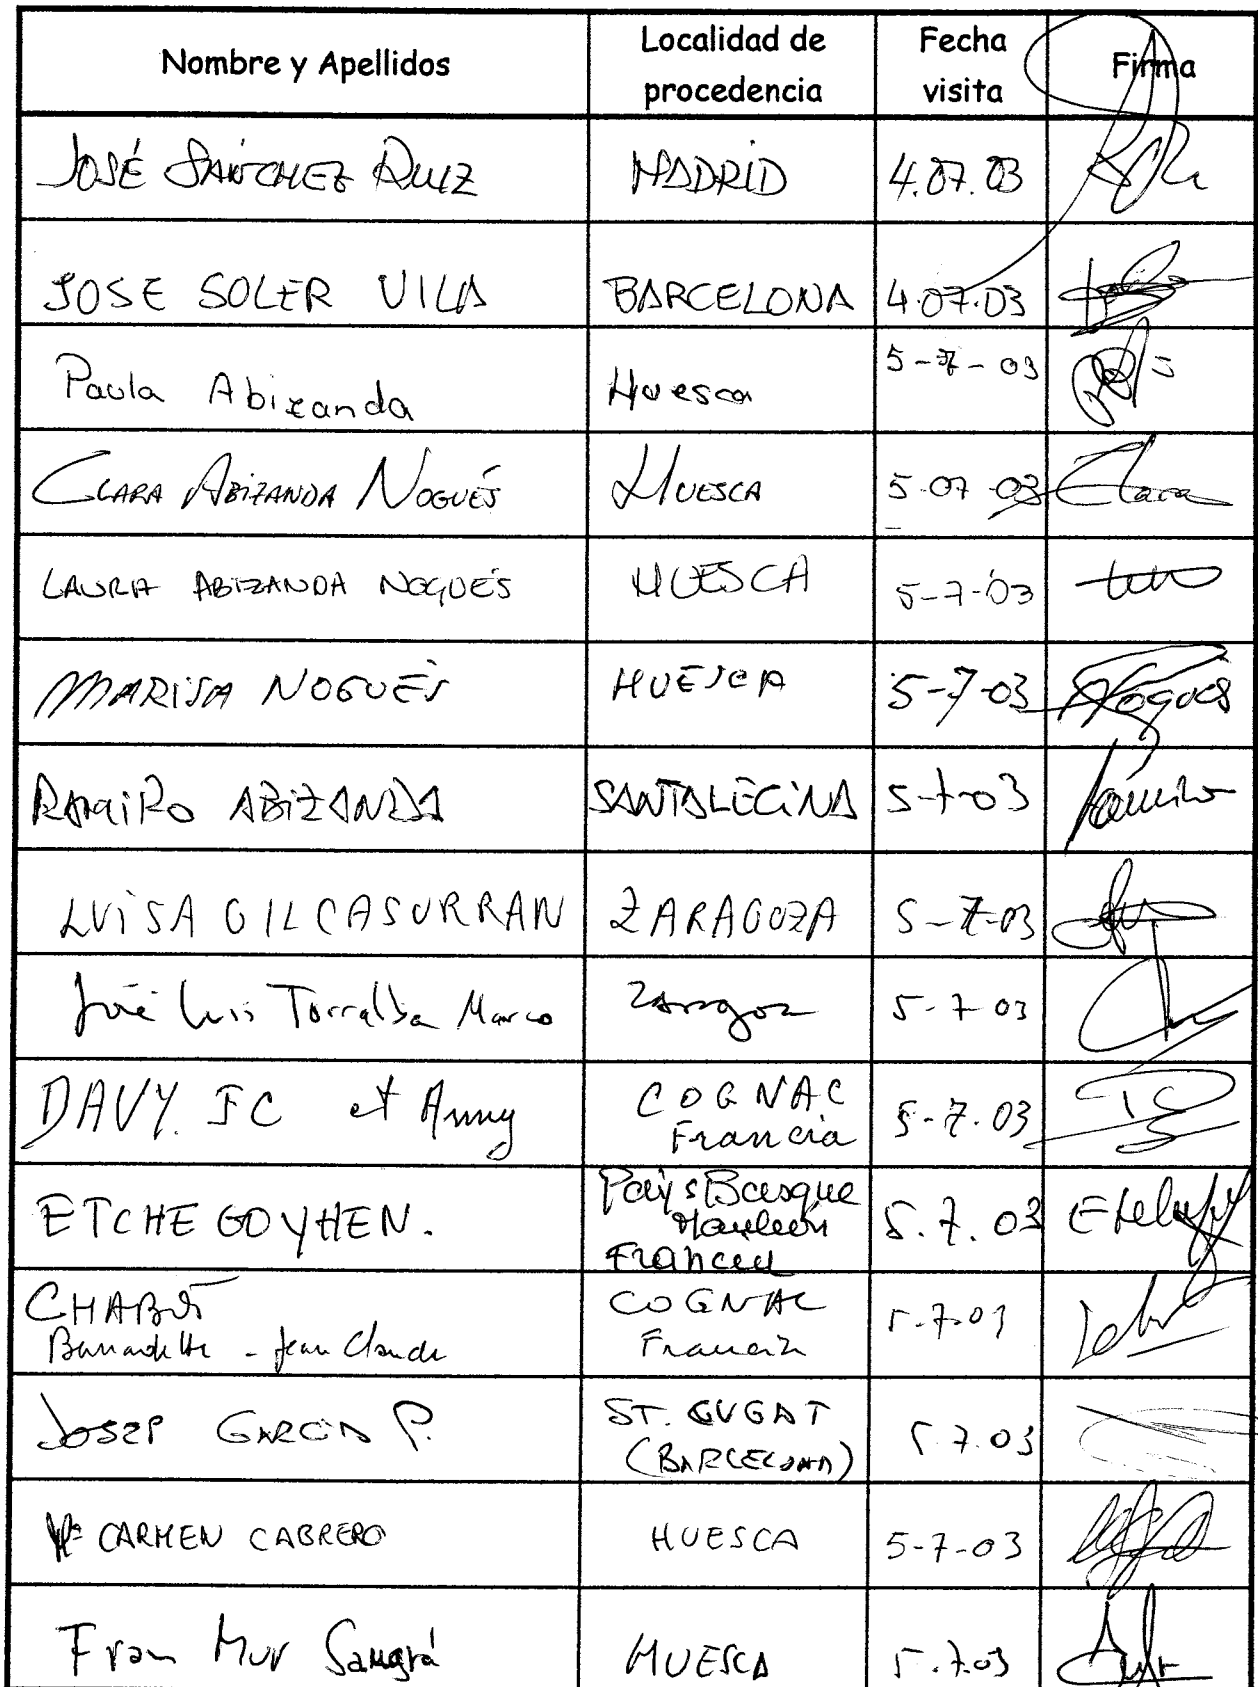 Nombre y Apellidos Localidad de procedencia Fecha visita Firma
JOSÉ SÁNCHEZ RUIZ MADRID 4.07.03
JOSE SOLER VILA BARCELONA 4.07.03
Paula Abizanda Huesca 5-7-03
CLARA ABIZANDA NOGUÉS HUESCA 5-07-03 Clara
LAURA ABIZANDA NOGUÉS HUESCA 5-7-03
MARISA NOGUÉS HUESCA 5-7-03 Nogués
RAMIRO ABIZANDA SANTALECINA 5-7-03 Ramiro
LUISA GIL CASURRAN ZARAGOZA 5-7-03
José Luis Torralba Marco Zaragoza 5-7-03
DAVY. JC et Anny COGNAC Francia 5-7.03
ETCHEGOYHEN. Pays Basque Mauleon France 5.7.03
CHABOT
Bernadette - Jean Claude COGNAC Francia 5-7-03
JOSEP GARCIA P. ST. CUGAT (BARCELONA) 5.7.03
Mª CARMEN CABRERO HUESCA 5-7-03
Fran Mur Sangrá HUESCA 5.7.03